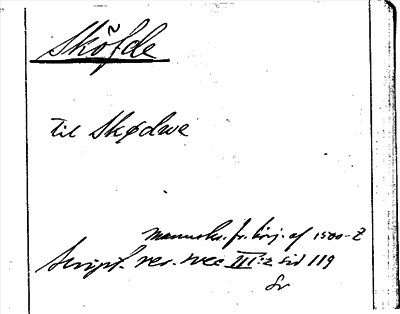 Sköfde
til Skødwe
manuskr. fr. börj. af 1500-t
Script. rer. svec III:2 sid 119
Sv